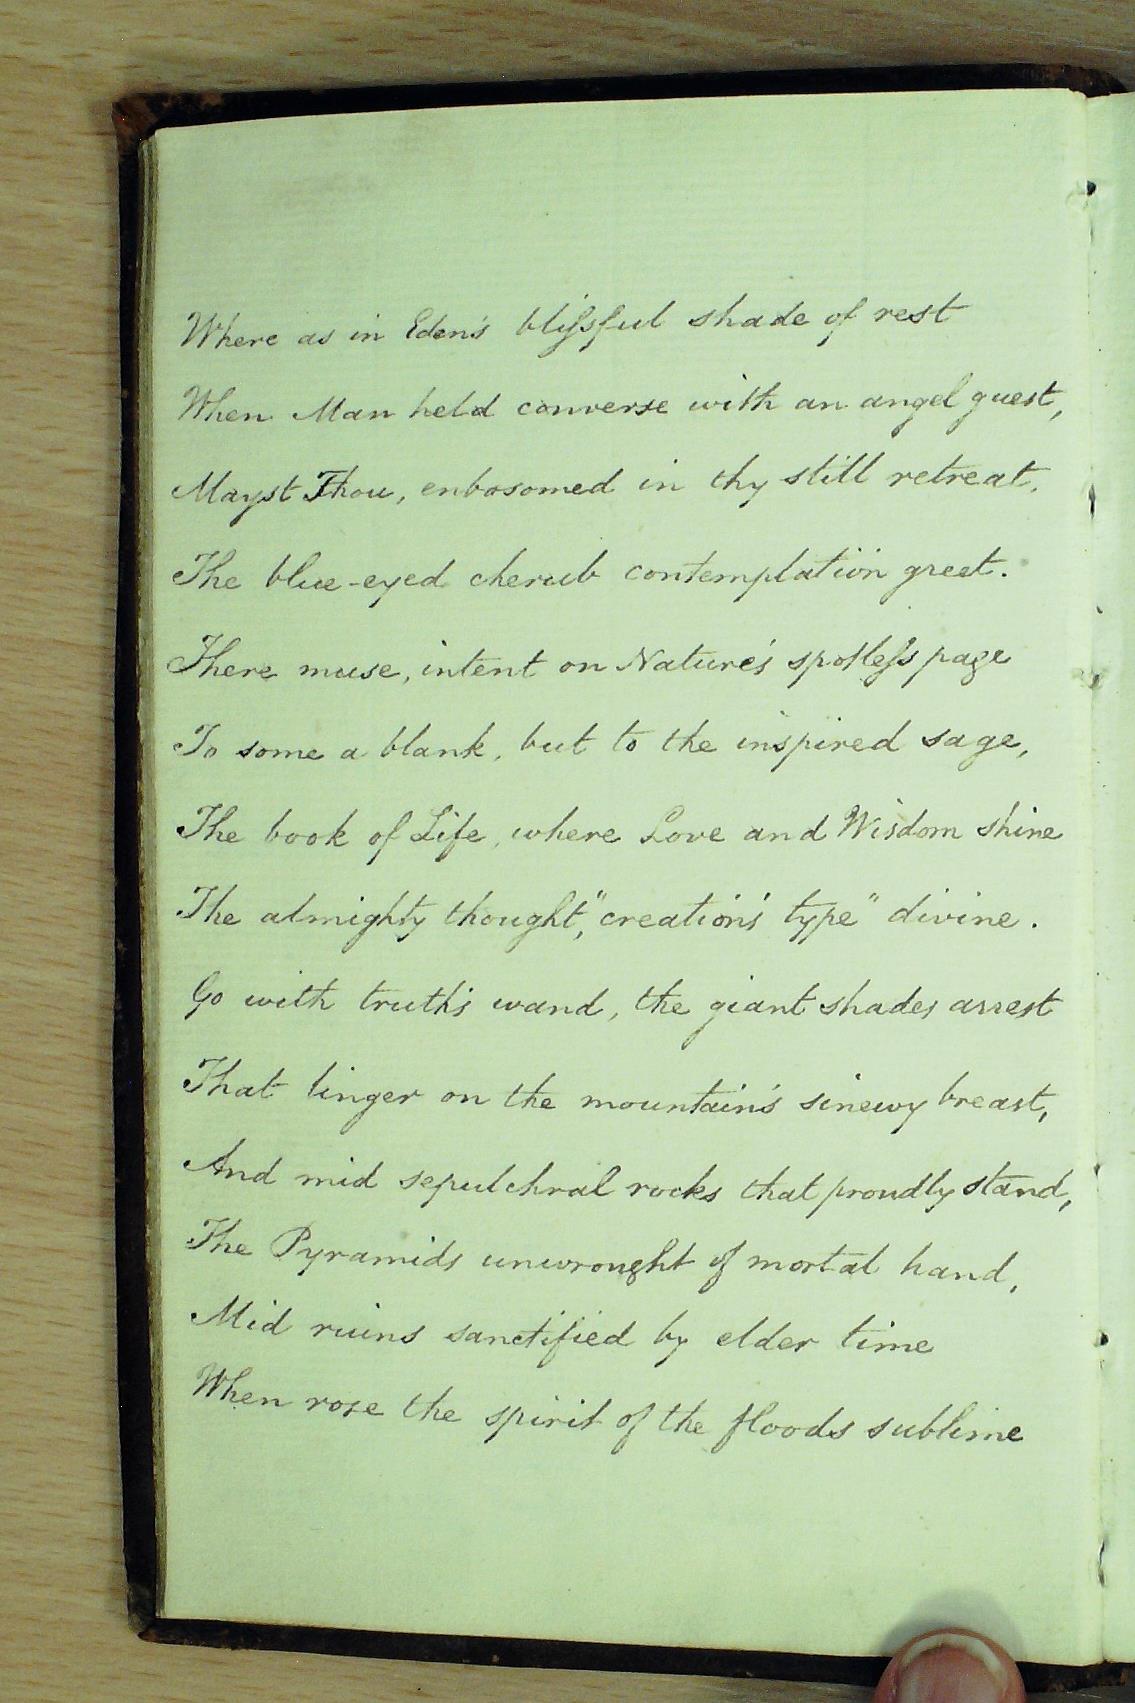 Where as in Eden's blifsful shade of rest
When Man held converse with an angel guest,
Mayst Thou, enbosomed in thy still retreat,
The blue-eyed cherub contemplation greet.
There muse, intent on Nature's spotlefs page
To some a blank, but to the inspired sage,
The book of Life, where Love and Wisdom shine
The almighty thought, "creation's type" divine.
Go with truth's wand, the giant shades arrest
That linger on the mountain's sinewy breast,
And mid sepulchral rocks that proudly stand,
The Pyramids unwrought of mortal hand,
Mid ruins sanctified by elder time
When rose the spirit of the floods sublime